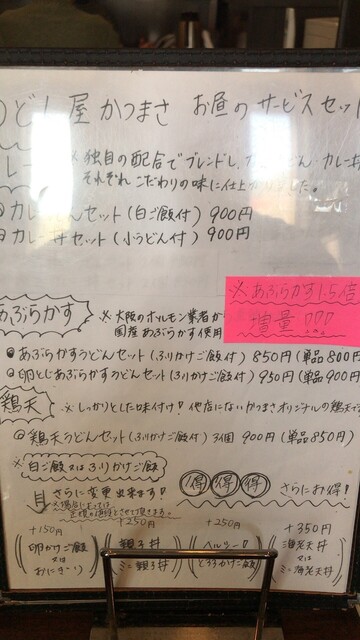 どん屋かつまさ お昼のサービスセット
※独自の配合でブレンドし、
それぞれ こだわりの味に仕上
セット (白ご飯付) 900円
セット (小うどん付) 900円
あぶらかす
※大阪のホルモン業者か
国産あぶらかす使用
※あぶらかす1.5倍
増量
あぶらかすうどんセット (ふりかけご飯付) 850円 (単品800円
卵とじあぶらかすうどんセット (ふりかけご飯付) 950円 (単品900円
鶏天
※しっかりとした味付け! 他店にないかつまさオリジナルの鶏天
鶏天うどんセット (ふりかけご飯付) 3個 900円 (単品850円)
※白ご飯又はふりかけご飯
さらに変更出来ます!
得 得 得 さらにお得!
+150円
卵かけご飯
又は
おにぎり
+250円
親子丼
ミニ親子丼
+250円
ヘルシー
とろろかけご飯
+350円
海老天丼
又は
ミニ海老天丼